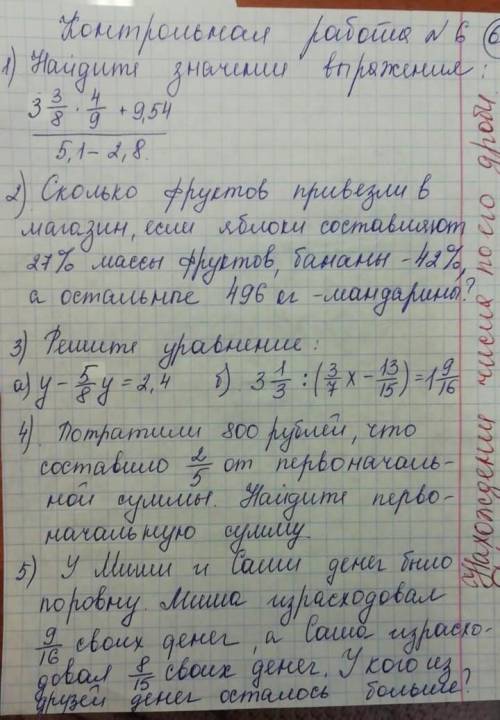 Контрольная работа №6 6
1) Найдите значении выражения:
3 3/8 · 4/9 + 9,54
5,1 - 2,8.
2) Сколько фруктов привезли в
магазин, если яблоки составляют
27% массы фруктов, бананы - 42%,
а остальные 496 кг - мандарины?
3) Решите уравнение:
а) у - 5/8 у = 2,4 б) 3 1/3 : (3/7 х - 13/15) = 1 9/16
4) Потратили 800 рублей, что
составило 2/5 от первоначаль-
ной суммы. Найдите перво-
начальную сумму.
5) У Миши и Саши денег было
поровну. Миша израсходовал
9/16 своих денег, а Саша израсхо-
довал 8/15 своих денег. У кого из
друзей денег осталось больше?
Нахождение числа по его дроби.